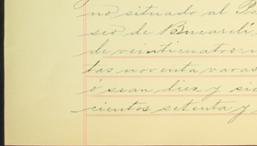 no situado al P
seo de Bucareli,
de veinticuatro m
tas noventa varas
ó sean diez y sie
cientos setenta y